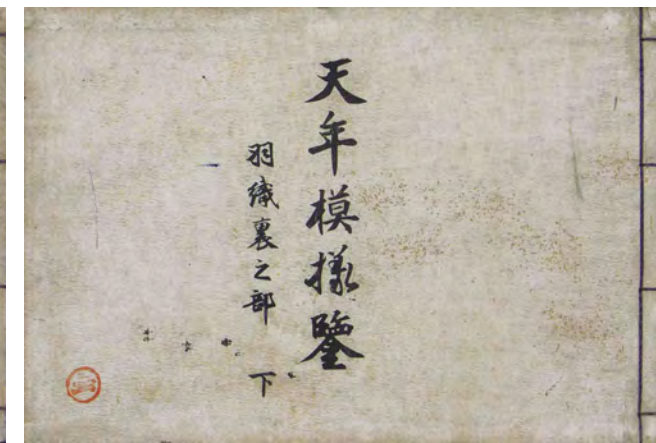 天年模様鑒
羽織裏之部 下